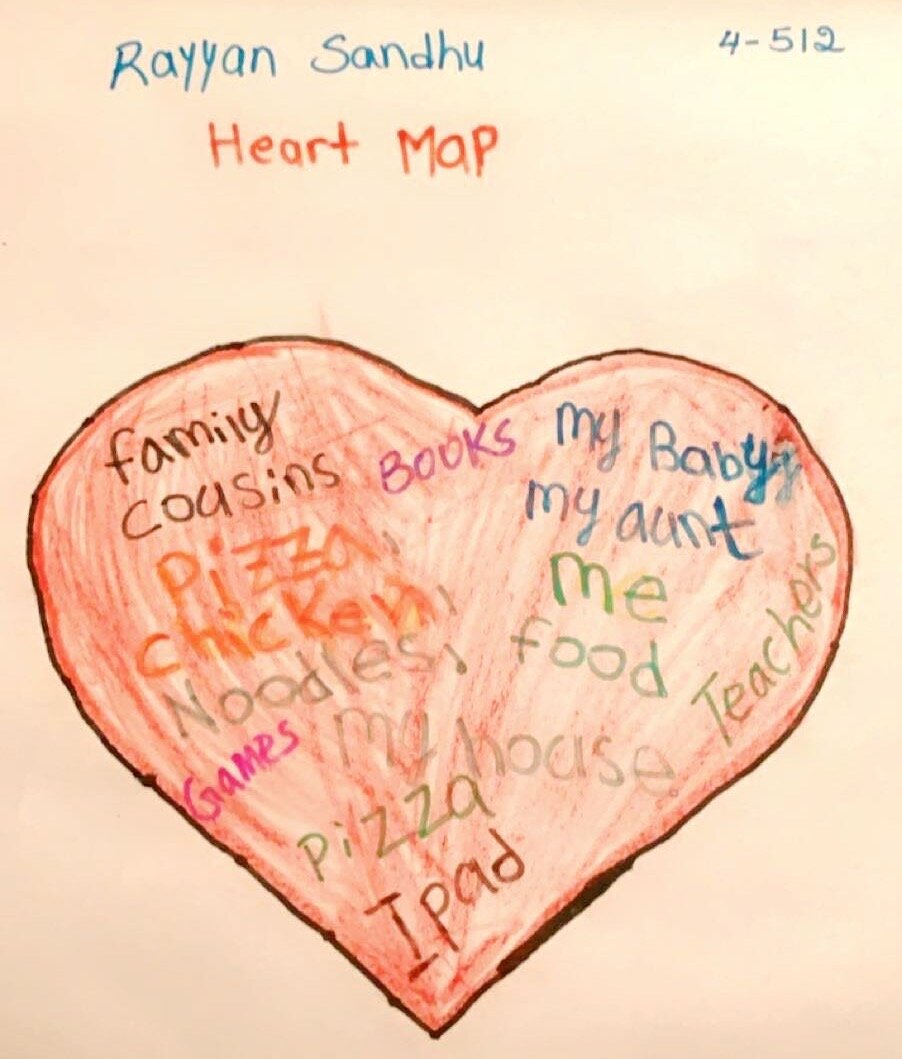 Rayyan Sandhu
4-512
Heart Map
family
cousins
Books
my Baby
my aunt
pizza,
chicken,
Noodles,
me
food
Teachers
Games
my house
pizza
Ipad